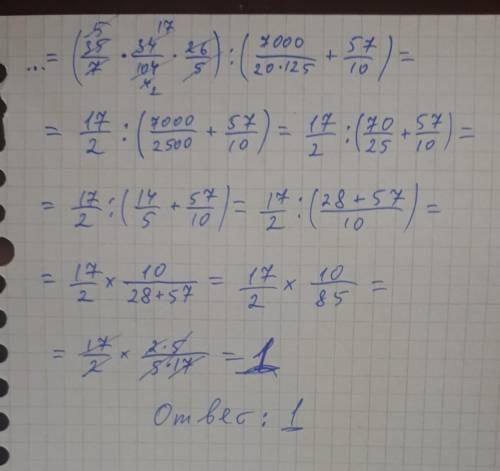 5 17
... = (35/7 · 34/104 · 26/5) : (7000/20·125 + 57/10) =
= 17/2 : (7000/2500 + 57/10) = 17/2 : (70/25 + 57/10) =
= 17/2 : (14/5 + 57/10) = 17/2 : (28 + 57/10) =
= 17/2 × 10/28+57 = 17/2 × 10/85 =
= 17/2 × 2·5/5·17 = 1
Ответ: 1